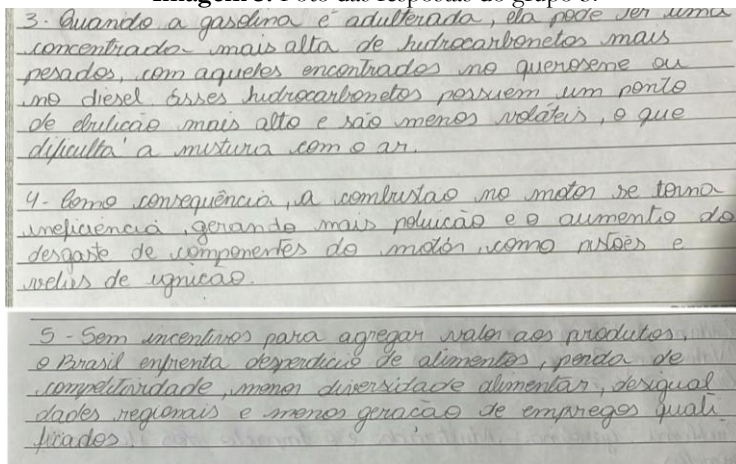 Imagem 3: Foto das respostas do grupo 3.
3. Quando a gasolina é adulterada, ela pode ser uma
concentrado mais alta de hidrocarbonetos mais
pesados, com aqueles encontrados no querosene ou
no diesel. Esses hidrocarbonetos possuem um ponto
de ebulicão mais alto e são menos voláteis, o que
dificulta a mistura com o ar.
4- Como consequência, a combustao no motor se torna
ineficiência, gerando mais polucão e o aumento do
desgaste de componentes do motor, como pistoẽs e
velas de ignicão.
5 - Sem incentivos para agregar valor aos produtos,
o Brasil enfrenta desperdicio de alimentos, perda de
competitividade, menor diversidade alimentar, desigual
dades regionais e menos geracão de empregos quali
ficados.